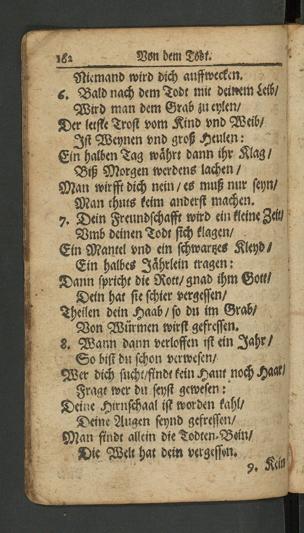 182 Von dem Todt.
Niemand wird dich auffwecken.
6. Bald nach dem Todt mit deinem Leib/
Wird man dem Grab zu eylen/
Der letste Trost vom Kind vnd Weib/
Ist Weynen vnd groß Heulen:
Ein halben Tag währt dann ihr Klag/
Biß Morgen werdens lachen/
Man wirfft dich nein/ es muß nur seyn/
Man thuts keim anderst machen.
7. Dein Freundschafft wird ein kleine Zeit/
Vmb deinen Todt sich klagen/
Ein Mantel vnd ein schwartzes Kleyd/
Ein halbes Jährlein tragen:
Dann spricht die Rott/ gnad ihm Gott/
Dein hat sie schier vergessen/
Theilen dein Haab/ so du im Grab/
Von Würmen wirst gefressen.
8. Wann dann verloffen ist ein Jahr/
So bist du schon verwesen/
Wer dich sucht/ findt kein Haut noch Haar/
Fragt wer du seyst gewesen:
Deine Hirnschaal ist worden kahl/
Deine Augen seynd gefressen/
Man findt allein die Todten-Bein/
Die Welt hat dein vergessen.
9. Kein